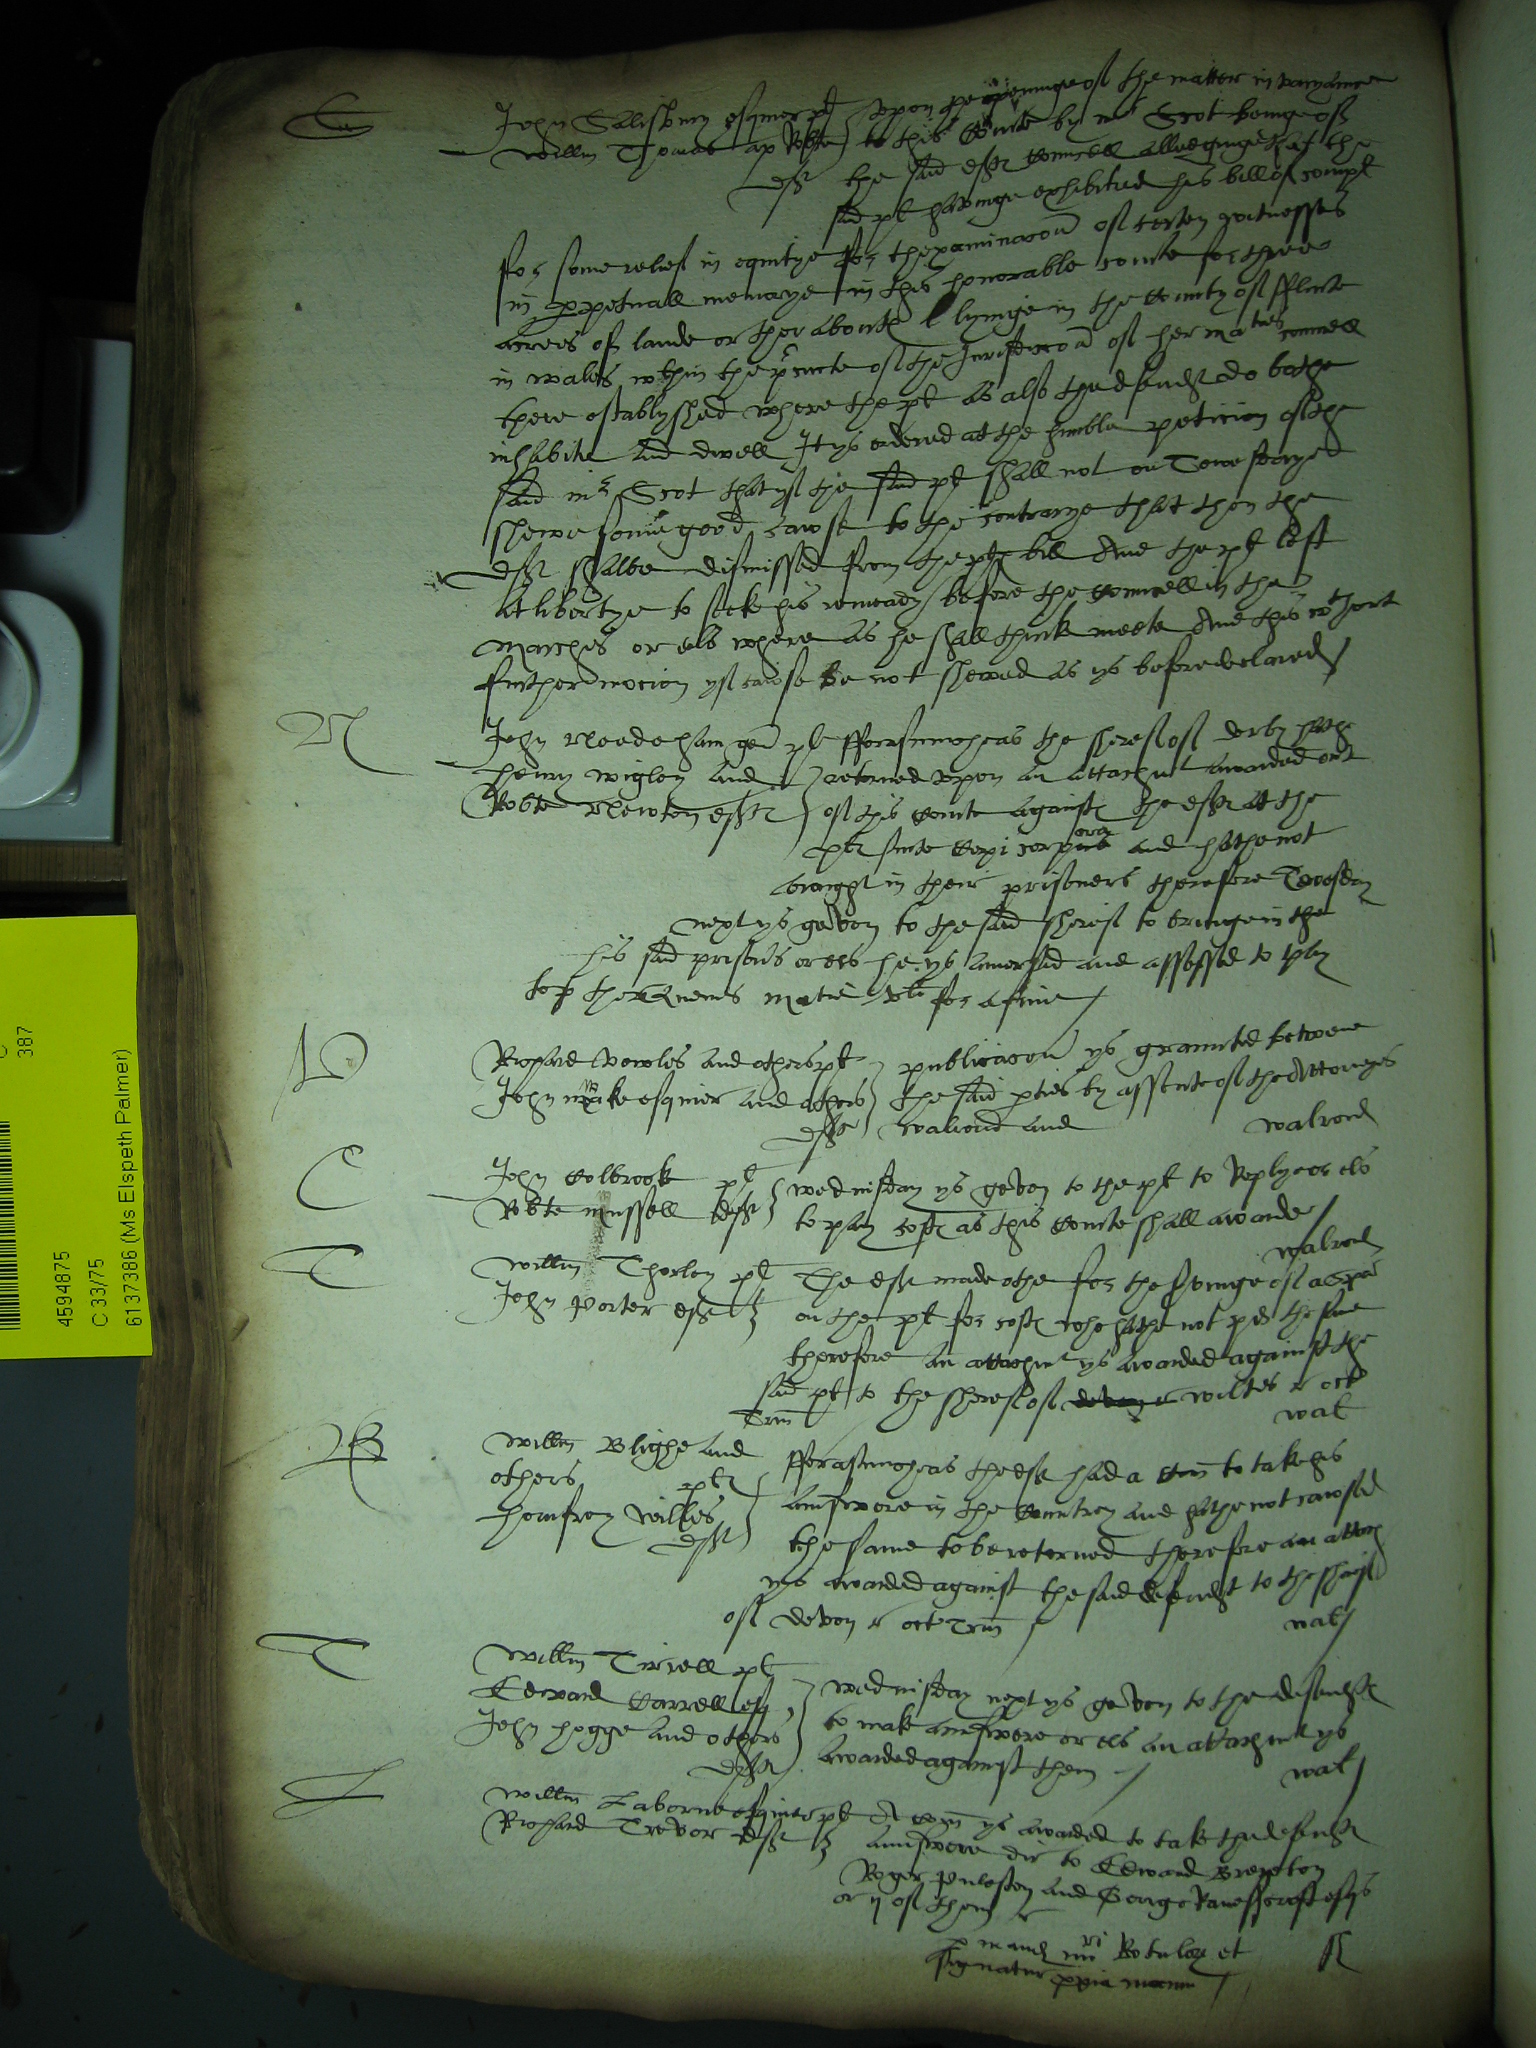 S
John Salisbury esquier pl Upon the openinge of the matter in varyaunce
Willm Thomas ap Robte to this Courte by mr Scot beinge of
deft the said deft counsell alledginge that the
said pl havinge exhibited his bill of compl
for some relief in equitye for thexaminacon of certen witnesses
in perpetuall memorye in this honorable courte for three
acres of lande or ther abouts lyinge in the County of Flinte
in wales wthin the precincte of the Jurisdiccon of her maties counsell
there establyshed where the pl as also the defendt do bothe
inhabite and dwell It ys ordered at the humble peticion of the
said mr Scot that yf the said pl shall not on
shewe some good cause to the contrarye that then the
deft shalbe dismissed from the pl bill And the pl left
at libertye to seke his remeady before the Counsell in the
Marches or els where as he shall think meete And this wthout
further mocion yf cause be not shewed as ys before declared
N
John Needeham gen pl Fforasmuche as the sheref of derby hath
Henry wigley and retorned upon an attachmt awarded out
Robte Newton defts of this Courte against the defts at the
pl suite Cepi corpora and hathe not
brought in their prisoners therefore Tewsday
next ys geven to the said sheref to bringe in the
his said prisoners or els he ys amersed and assessed to pay
to the Quenes matie vli for a fine
Richard Vowles and others pl publicacon ys graunted betwene
John esquier and others the said pties by assente of the Attorneyes
defts walrond and walrond
C
John Colbrook pl wednisday ys geven to the pl to Replye or els
Robte mussell deft to pay costs as this Courte shall awarde
walrond
T
Willm Thorley pl The deft made othe for the servinge of a
John Porter deft on the pl for costs who hathe not pd the same
therefore an attachmt ys awarded against the
said pl to the sheref of devon wiltes r oct
Trin wal
B
Willm Blighe and Fforasmuche as the deft had a Com to take his
others pl answere in the Countrey and hathe not caused
Homfrey Wilkes the same to be retorned therefore an attach
deft ys awarded against the said defendt to the sheref
of devon r oct Trin wal
T
Willm Tirrell pl
Edward Carrell esq wednisday next ys geven to the defendts
John hogge and others to make answere or els an attachmt ys
defts awarded against them wal
L
Willm Laborne esquier pl A Com ys awarded to take the defendts
Richard Trevor deft answere dir to Edward Brereton
Roger Puleston and George Ravenscroft esqs
or ij of them
p mand mri Rotulor et
signatur ppria manu
387
4594875
C 33/75
6137386 (Ms Elspeth Palmer)